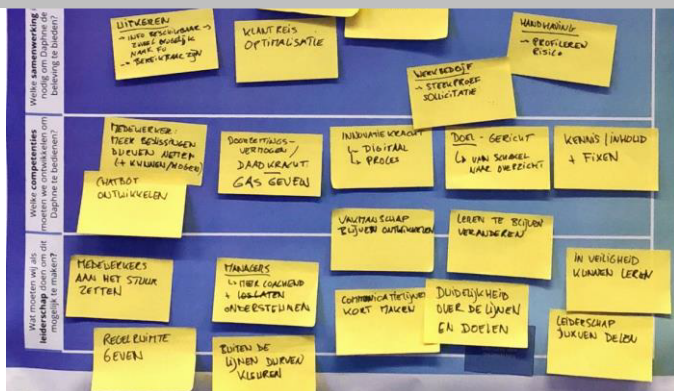 Welke samenwerking is
nodig om Daphne de
beleving te bieden?
UITKEREN
→ INFO BESCHIKBAAR →
ZOVEEL MOGELIJK
NAAR FU
→ BEREIKBAAR ZIJN
KLANTREIS
OPTIMALISATIE
WERKBEDRIJF
→ STEEKPROEF
SOLLICITATIE
HANDHAVING
→ PROFILEREN
RISICO
Welke competenties
moeten we ontwikkelen om
Daphne te bedienen?
MEDEWERKER:
MEER BESLISSINGEN
DURVEN NEMEN
(+ KUNNEN/MOGEN)
CHATBOT
ONTWIKKELEN
DOORZETTINGS-
VERMOGEN /
DAADKRACHT
GAS GEVEN
INNOVATIEKRACHT
↳ DIGITAAL
↳ PROCES
DOEL - GERICHT
↳ VAN SCHAKEL
NAAR OVERZICHT
KENNIS / INHOUD
+ FIXEN
VAKMANSCHAP
BLIJVEN ONTWIKKELEN
LEREN TE BLIJVEN
VERANDEREN
Wat moeten wij als
leiderschap doen om dit
mogelijk te maken?
MEDEWERKERS
AAN HET STUUR
ZETTEN
MANAGERS
↳ MEER COACHEND
+ LOSLATEN
ONDERSTEUNEN
COMMUNICATIELIJNEN
KORT MAKEN
DUIDELIJKHEID
OVER DE LIJNEN
EN DOELEN
IN VEILIGHEID
KUNNEN LEREN
REGELRUIMTE
GEVEN
BUITEN DE
LIJNEN DURVEN
KLEUREN
LEIDERSCHAP
DURVEN DELEN